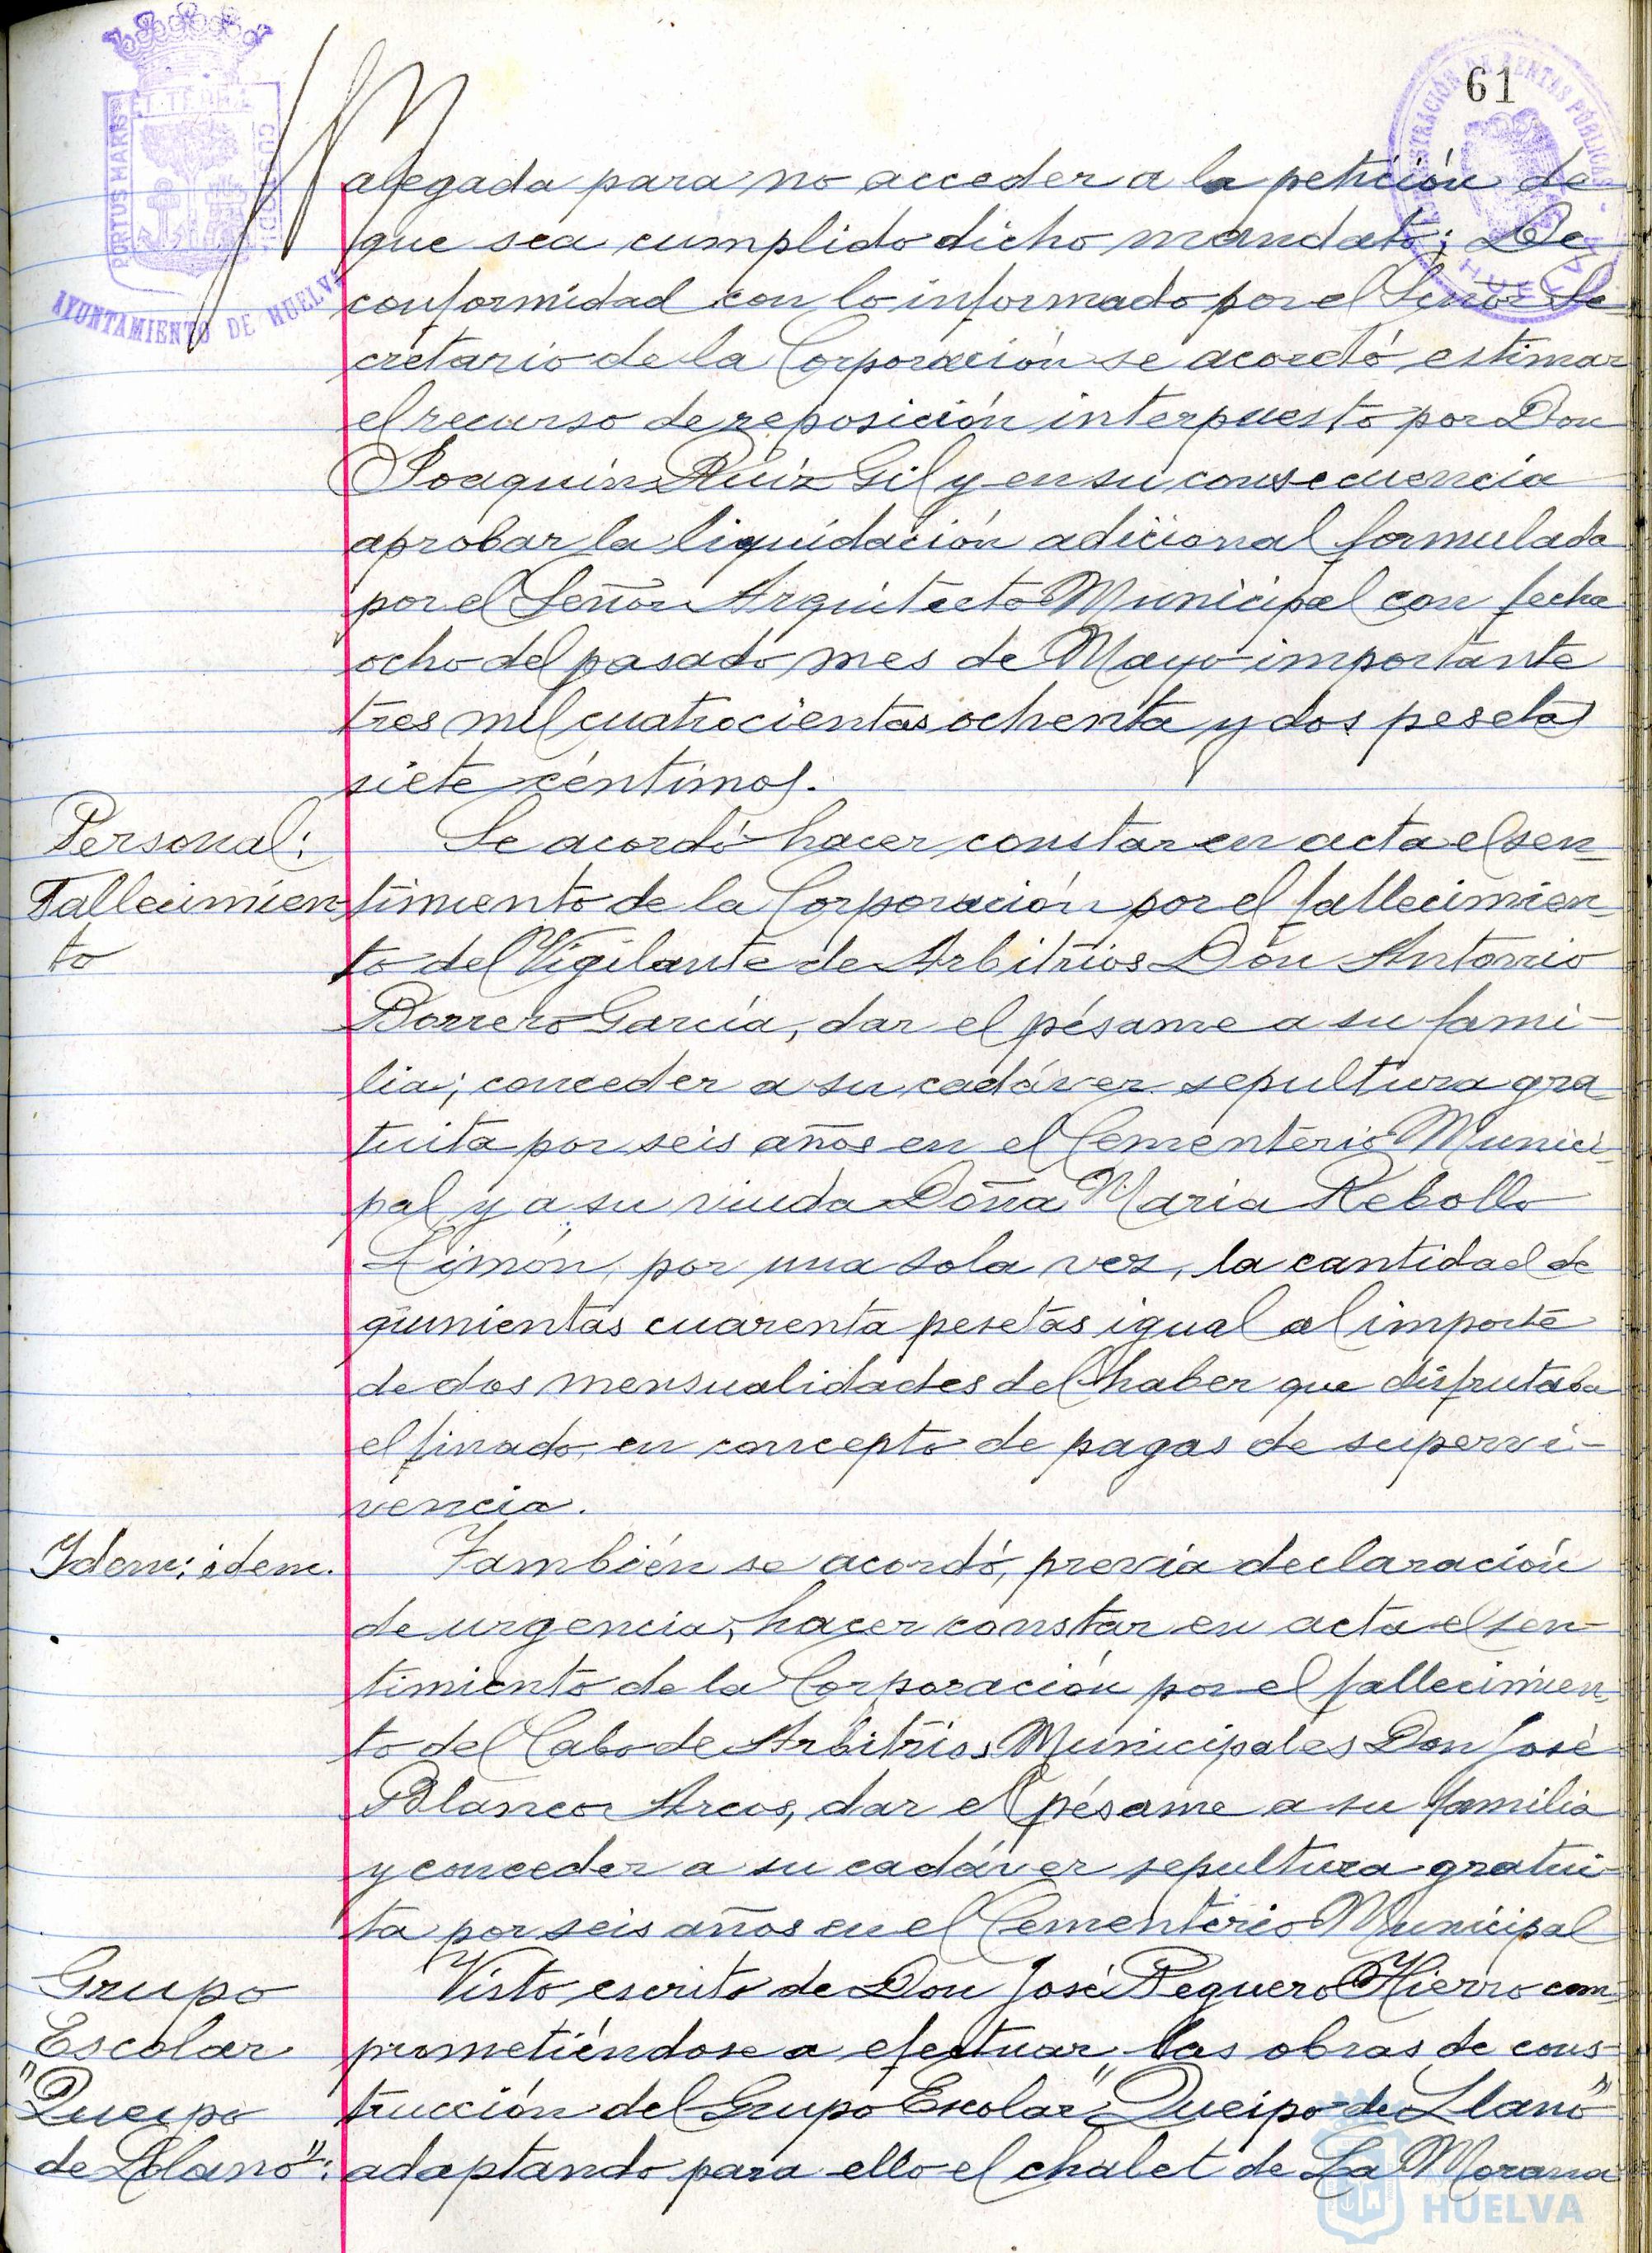 61
PORTUS MARIS ET TERRAE CUSTODIA
AYUNTAMIENTO DE HUELVA
ADMINISTRACIÓN DE RENTAS PÚBLICAS
HUELVA
alegada para no acceder a la petición de
que sea cumplido dicho mandato; De
conformidad con lo informado por el Señor Se
cretario de la Corporación se acordó estimar
el recurso de reposición interpuesto por Don
Joaquin Ruiz Gil y en su consecuencia
aprobar la liquidación adicional formulada
por el Señor Arquitecto Municipal con fecha
ocho del pasado mes de Mayo importante
tres mil cuatrocientas ochenta y dos pesetas
siete céntimos.
Personal:
Fallecimien
to
Se acordó hacer constar en acta el sen_
timiento de la Corporación por el fallecimien_
to del Vigilante de Arbitrios Don Antonio
Borrero García, dar el pésame a su fami-
lia; conceder a su cadáver sepultura gra_
tuita por seis años en el Cementerio Munici_
pal y a su viuda Doña Maria Rebollo
Limón, por una sola vez, la cantidad de
quinientas cuarenta pesetas igual al importe
de dos mensualidades del haber que disfrutaba
el finado, en concepto de pagas de supervi-
vencia.
Idem: idem.
También se acordó, previa declaración
de urgencia, hacer constar en acta el sen-
timiento de la Corporación por el fallecimien_
to del Cabo de Arbitrios Municipales Don José
Blanco Arcos, dar el pésame a su familia
y conceder a su cadáver sepultura gratui-
ta por seis años en el Cementerio Municipal
Grupo
Escolar
"Queipo
de Llano":
Visto escrito de Don José Peguero Hierro com_
prometiéndose a efectuar las obras de cons-
trucción del Grupo Escolar "Queipo de Llano"
adaptando para ello el chalet de La Morana
HUELVA